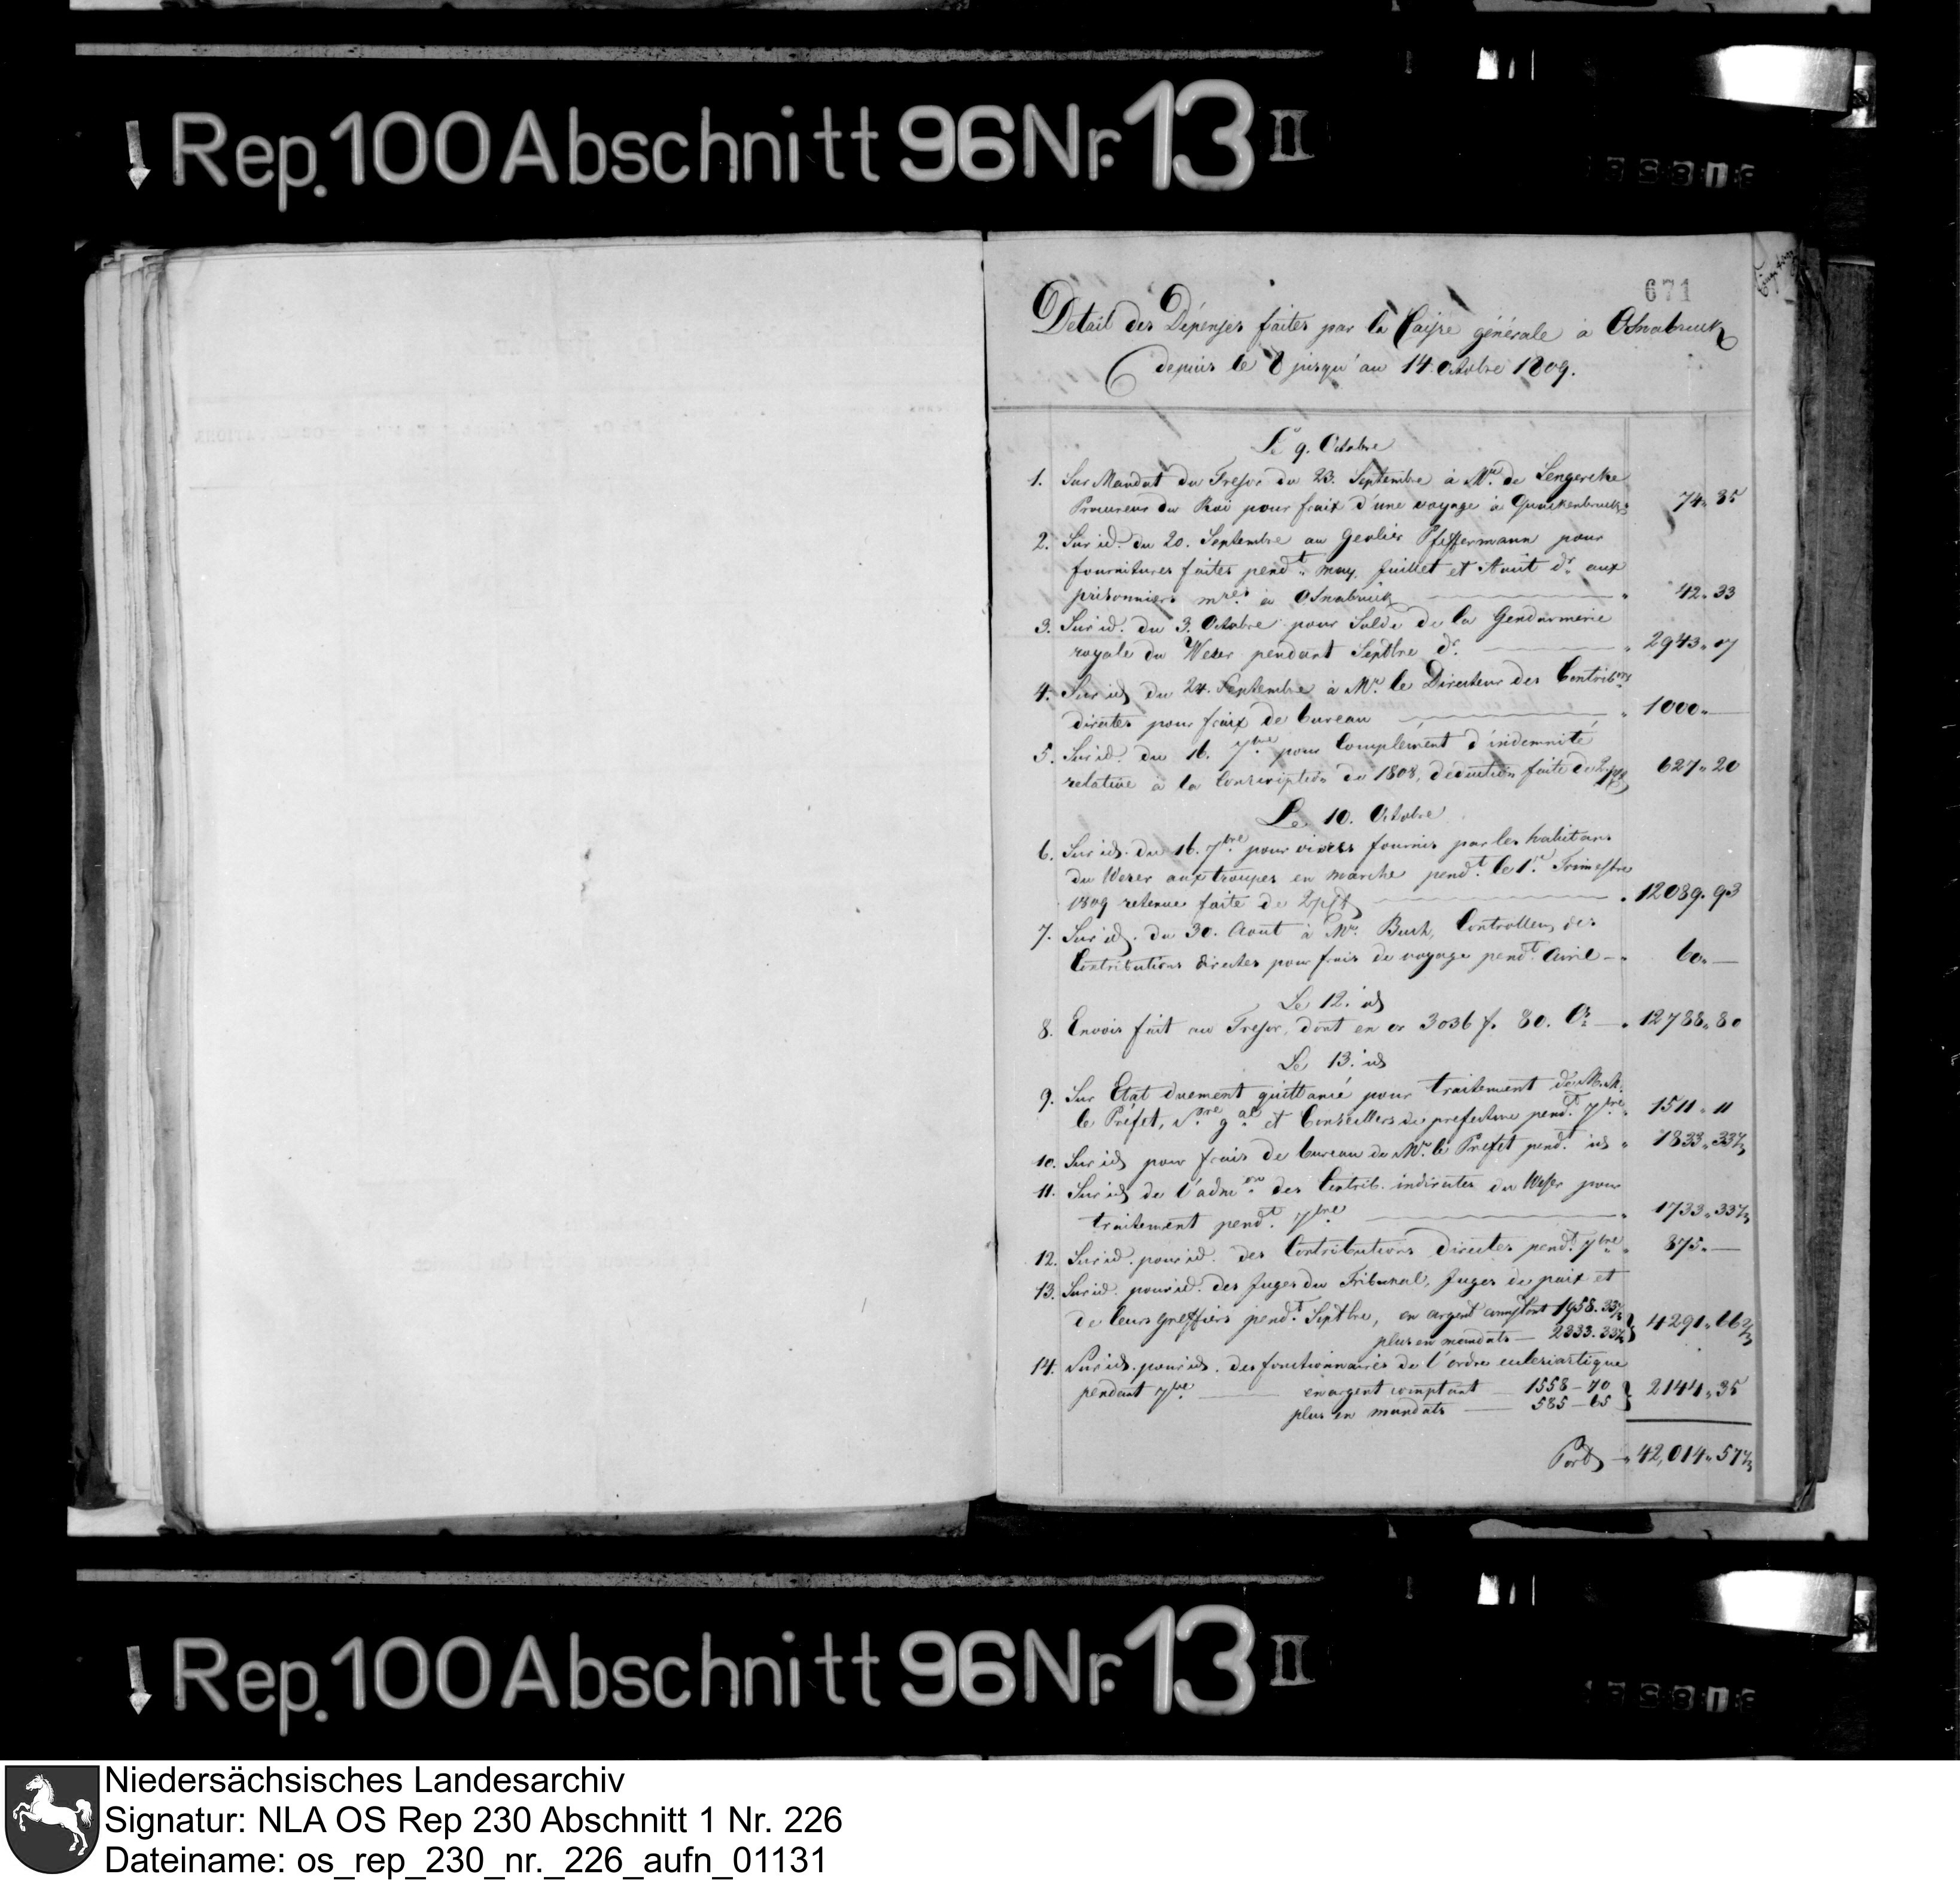 Rep. 100 Abschnitt 96 Nr. 13 II
671
Detail des Dépenses faites par la Caisse générale à Osnabruck
depuis le 8 jusqu'au 14. Octobre 1809.
Le 9. Octobre
1. Sur Mandat du Tresor du 23. Septembre à Mr. de Lengercke
Procureur du Roi pour fraix d'une voyage à Quackenbruck " 74 " 35
2. Sur id. du 20. Septembre au Geolier Pfeffermann pour
fournitures faites pendt. may, Juillet et Aout dr. aux
prisonniers mres. à Osnabruck — " 42 " 33
3. Sur id. du 3. Octobre pour Solde de la Gendarmerie
royale du Weser pendant Septbre dr. — " 2943 " 17
4. Sur id du 24. Septembre à Mr. le Directeur des Contribons
directes pour fraix de bureau — " 1000 " —
5. Sur id. du 16. 7bre pour Complement d'indemnité
relative à la Conscription de 1808, déduction faite de 2 p% 627 " 20
Le 10. Octobre
6. Sur id. du 16. 7bre pour vivres fournis par les habitans
du Weser aux troupes en marche pendt. le 1r. Trimestre
1809 retenue faite de 2 p% — " 12089 " 93
7. Sur id. du 30. Aout à Mr. Controlleur des
Contributions directes pour frais de voyage pendt. Avril — " 60 " —
Le 12. id
8. Envois fait au Tresor, dont en or 3036 f. 80. Cs. — " 12788 " 80
Le 13. id
9. Sur Etat duement quittancé pour traitement de M.M.
le Préfet, Sre. gal. et Conseillers de prefecture pendt. 7bre. " 1511 " 11
10. Sur id pour frais de bureau de Mr. le Préfet pendt. id " 1833 " 33⅓
11. Sur id de l'admon. des Contrib. indirectes du Weser pour
traitement pendt. 7bre — " 1733 " 33⅓
12. Sur id. pour id. des Contributions directes pendt. 7bre " 875 " —
13. Sur id. pour id. des Juges du Tribunal, Juges de paix et
de leurs greffiers pendt. Septbre, en argent comptant 1958. 33⅓ } 4291 " 66⅔
plus en mandats — 2333. 33⅓
14. Sur id. pour id. des fonctionnaires de l'ordre eclesiastique
pendant 7bre — en argent comptant — 1558 - 70 } 2144 " 35
plus en mandats — 585 - 65
Port — " 42,014 " 57⅓
Rep. 100 Abschnitt 96 Nr. 13 II
Niedersächsisches Landesarchiv
Signatur: NLA OS Rep 230 Abschnitt 1 Nr. 226
Dateiname: os_rep_230_nr._226_aufn_01131